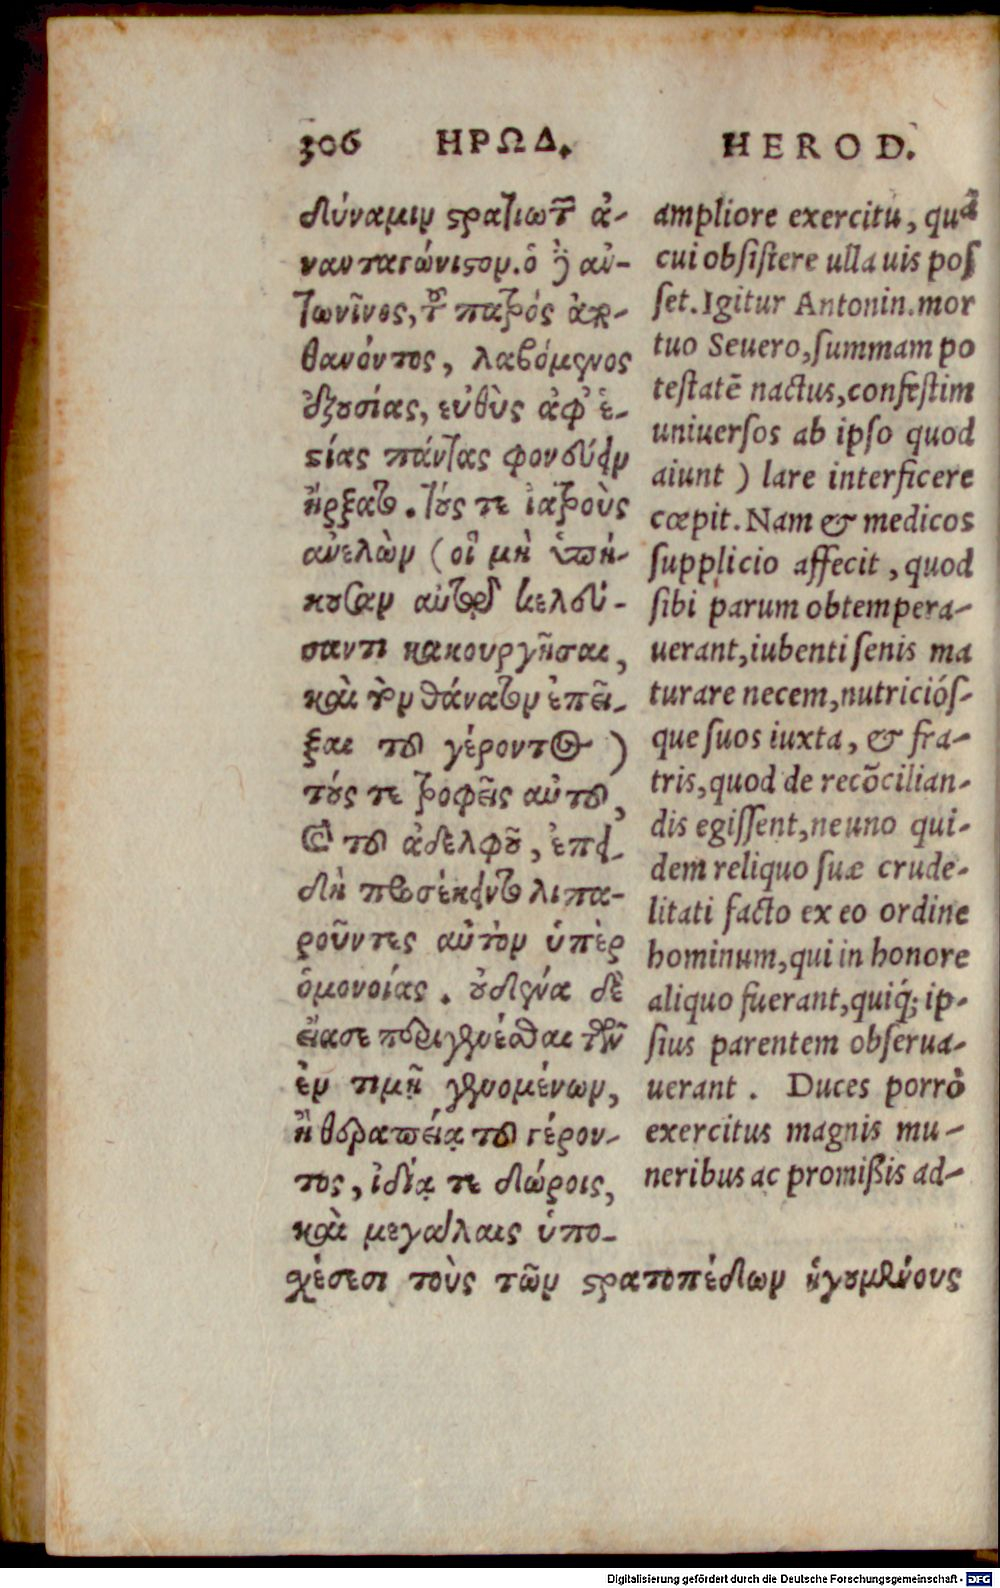 306 ΗΡΩΔ.
δύναμιν στρατιωτ͂ ἀ-
ναν ταγώνιστον. ὁ ἢ αὐ-
τωνῖνος, τ͂ πατρός ἀπο-
θανόντος, λαβόμενος
ἐξουσίας, εὐθὺς ἀφ' ἑ-
στίας πάντας φονεύειν
ἤρξατο. τούς τε ἰατροὺς
ἀνελὼν (οἳ μὴ ὑπή-
κουσαν αὐτῷ κελεύ-
σαντι κακουργῆσαι,
καὶ τὸν θάνατον ἐπεῖ-
ξαι τοῦ γέροντος)
τούς τε τροφεῖς αὐτοῦ,
καὶ τοῦ ἀδελφοῦ, ἐπει-
δὴ προσέκειντο λιπα-
ροῦντες αὐτὸν ὑπὲρ
ὁμονοίας. οὐδένα δὲ
εἴασε περιγενέσθαι τῶν
ἐν τιμῇ γενομένων,
ἢ θεραπείᾳ τοῦ γέρον-
τος, ἰδίᾳ τε δώροις,
καὶ μεγάλαις ὑπο-
χέσεσι τοὺς τῶν στρατοπέδων ἡγουμένους
HEROD.
ampliore exercitu, quā
cui obsistere ulla uis pos
set. Igitur Antonin. mor
tuo Seuero, summam po
testatē nactus, confestim
uniuersos ab ipso quod
aiunt ) lare interficere
cœpit. Nam & medicos
supplicio affecit, quod
sibi parum obtempera-
uerant, iubenti senis ma
turare necem, nutriciós-
que suos iuxta, & fra-
tris, quod de recōcilian-
dis egissent, ne uno qui-
dem reliquo suæ crude-
litati facto ex eo ordine
hominum, qui in honore
aliquo fuerant, quiq́; ip-
sius parentem obserua-
uerant. Duces porrò
exercitus magnis mu-
neribus ac promißis ad-
Digitalisierung gefördert durch die Deutsche Forschungsgemeinschaft - DFG